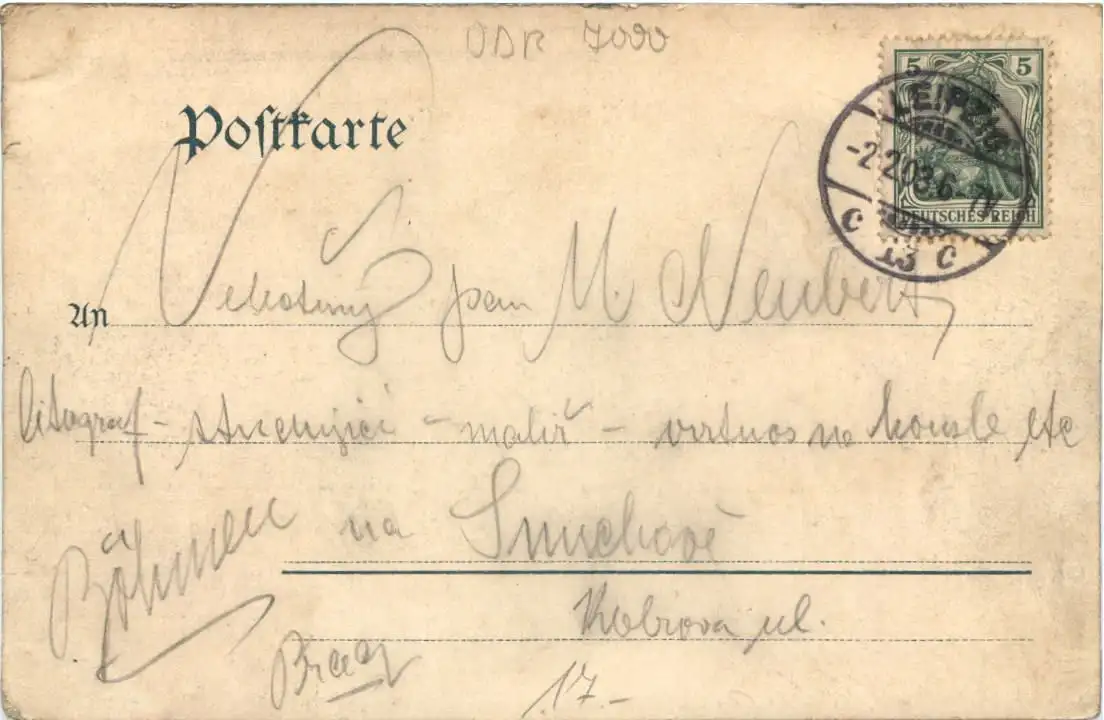 DDR 7000
Postkarte
5 5
LEIPZIG
-2.2.03.6-7N
C 13 C
DEUTSCHES REICH
An Vekošný pan M. Neubert,
litograf - studující - malíř - virtuos na housle etc
Böhmen na Smichově
Kobrova ul.
Prag 17.-